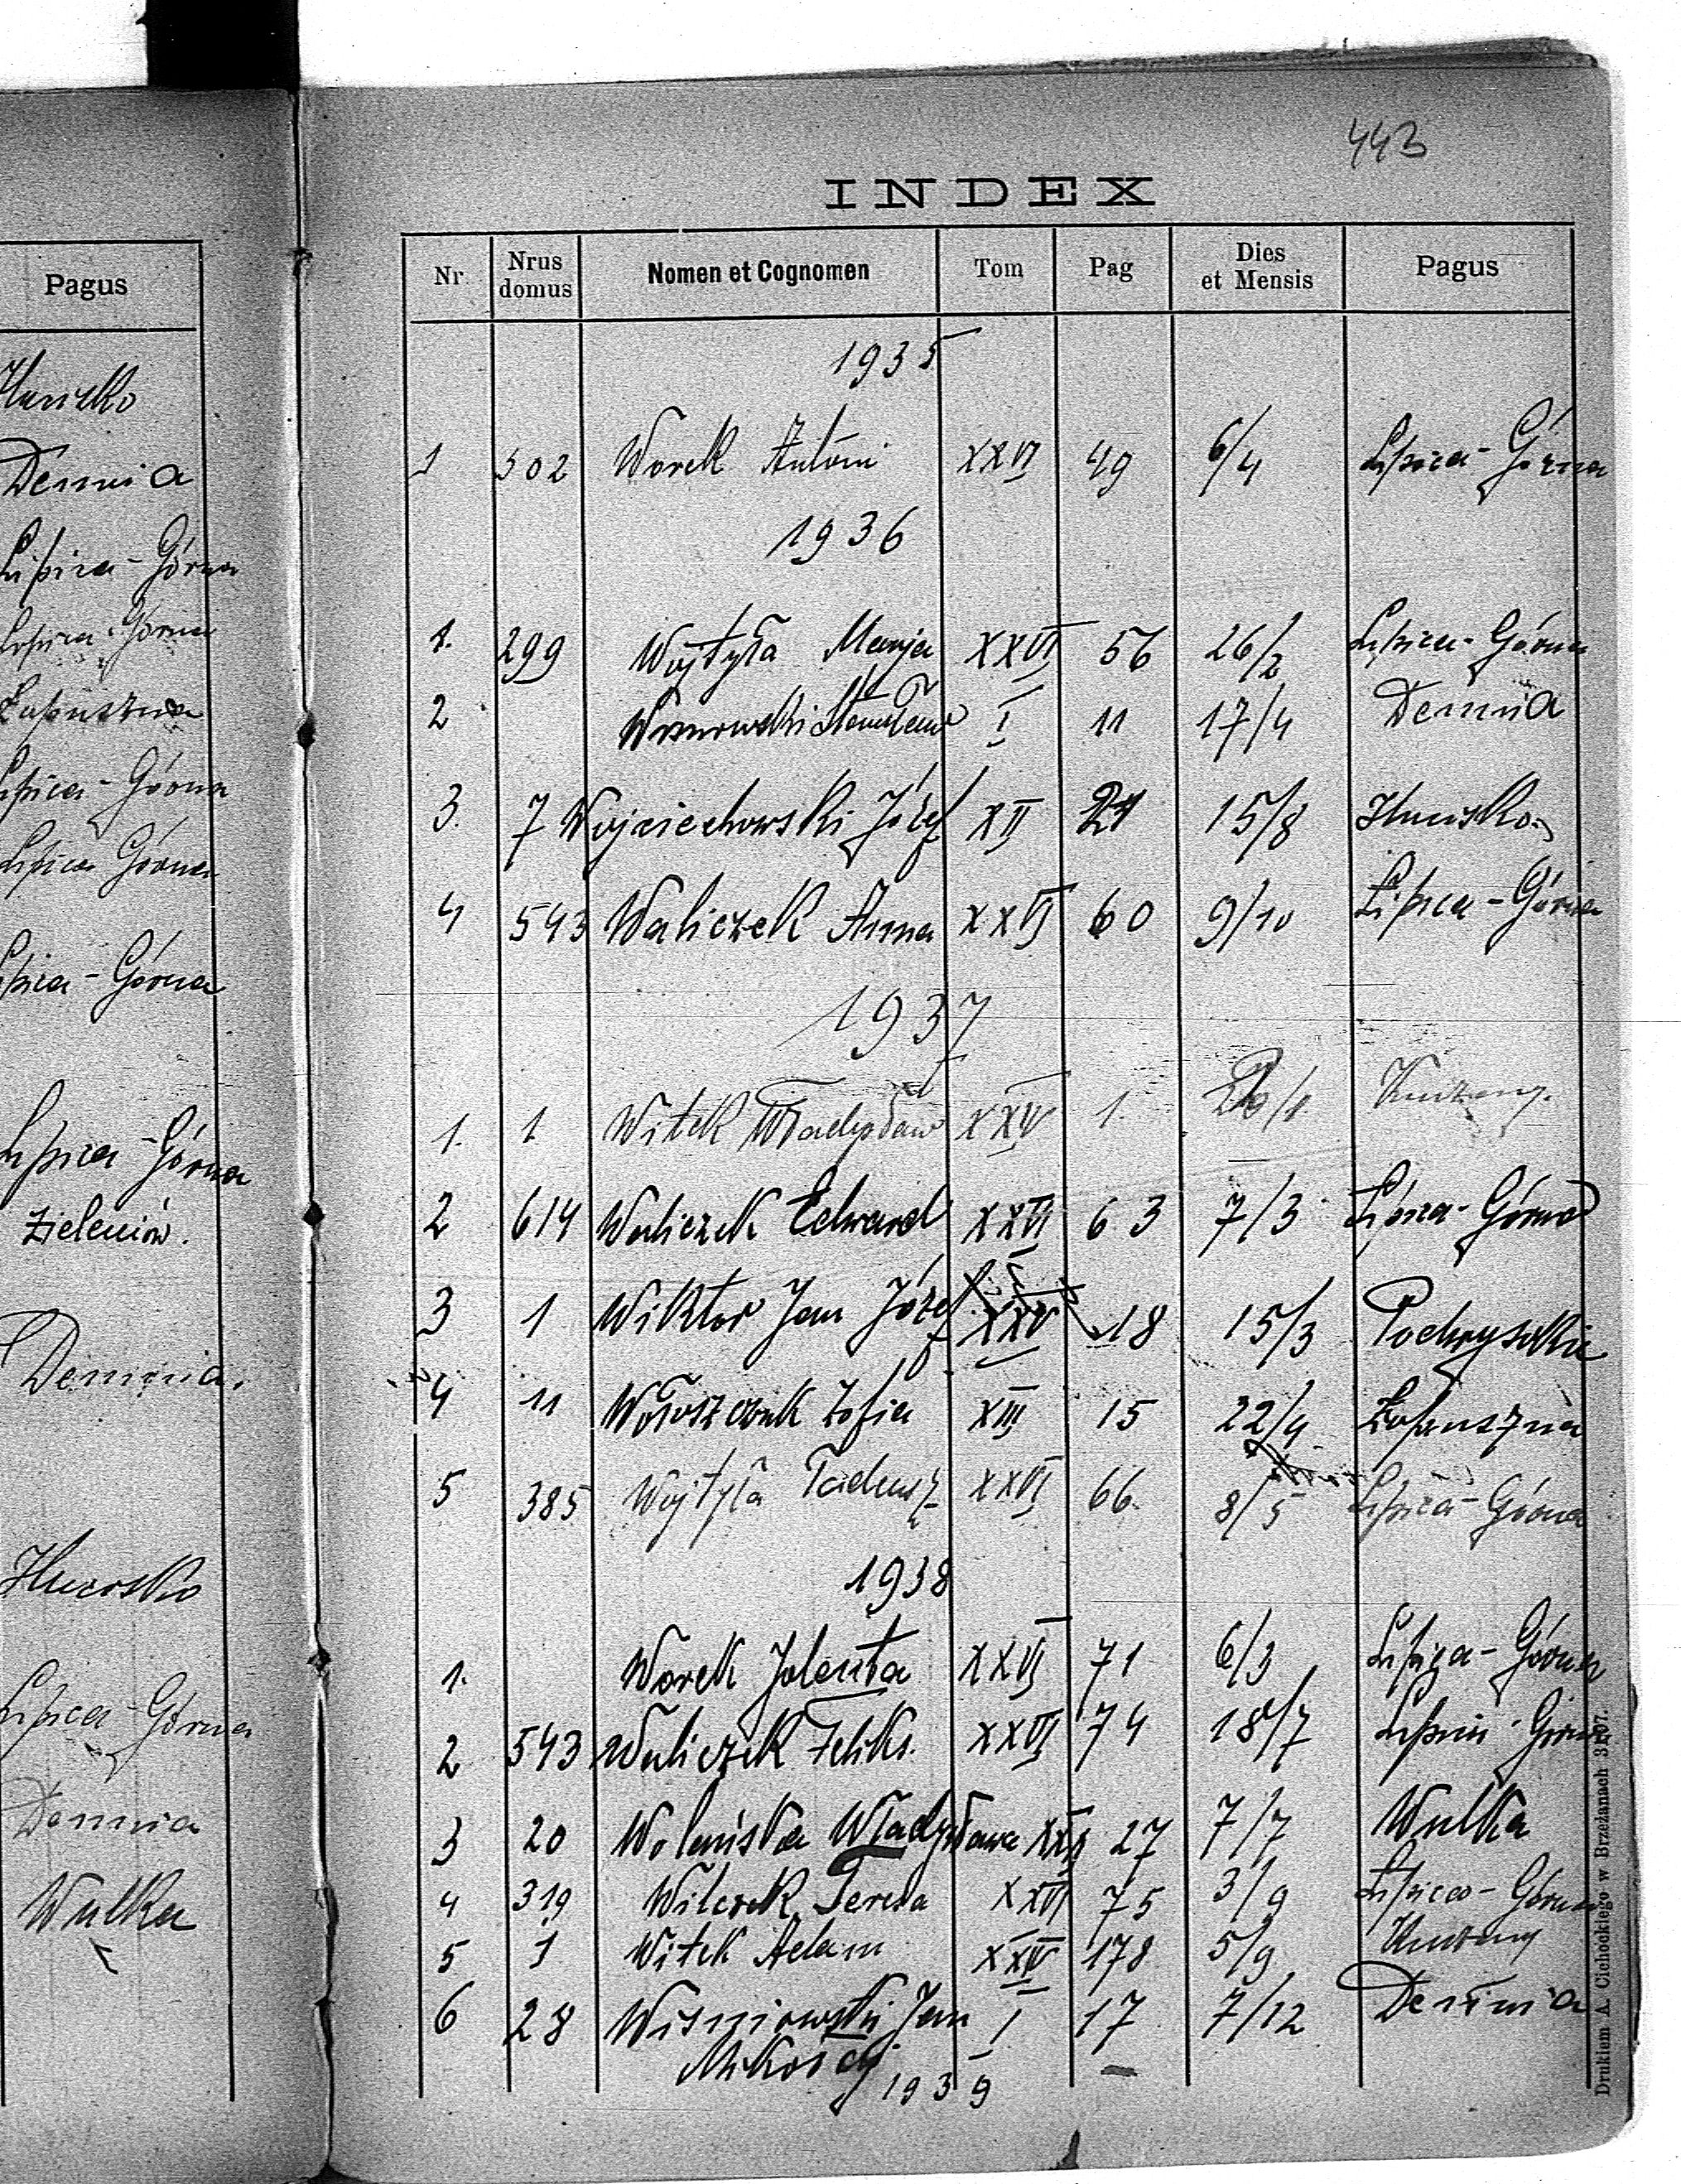 Pagus
Demnia
Lipica-Górna
Lipica-Górna
Łopuszna
Lipica-Górna
Lipica Górna
Lipica-Górna
Lipica-Górna
Zieleniów.
Demnia.
Hucisko
Lipica-Górna
Demnia
Wulka
443
INDEX
Nr Nrus domus Nomen et Cognomen Tom Pag Dies et Mensis Pagus
1935
1 502 Worek Antoni XXVI 49 6/4 Lipica-Górna
1936
1. 299 Wojtyła Marja XXVI 56 26/2 Lipica-Górna
2 I 11 17/4 Demnia
3. 7 Wojciechowski Józef XII 21 15/8 Hucisko
4 543 Waliczek Anna XXVI 60 9/10 Lipica-Górna
1937
1. 1 Witek Władysław XXIV 1.
2 614 Waliczek Edward XXVI 63 7/3 Lipica-Górna
3 1 Wiktor Jan Józef XXV 18 15/3
4 11 Wołoszczuk Zofia XIII 15 22/4 Łopuszna
5 385 Wojtyła Tadeusz XXVI 66 8/5 Lipica-Górna
1938
1. Worek Jolenta XXVI 71 6/3 Lipica-Górna
2 543 Waliczek Feliks. XXVI 74 18/7 Lipica-Górna
3 20 Wolańska Władysława 27 7/7 Wulka
4 319 Wilczek Teresa XXVI 75 3/9 Lipica-Górna
5 1 Witek Adam XXIV 178 5/9
6 28 Wiśniowski Jan I 17 7/12 Demnia
Mikołaj
1939
Drukiem A. Cichockiego w Brzeżanach